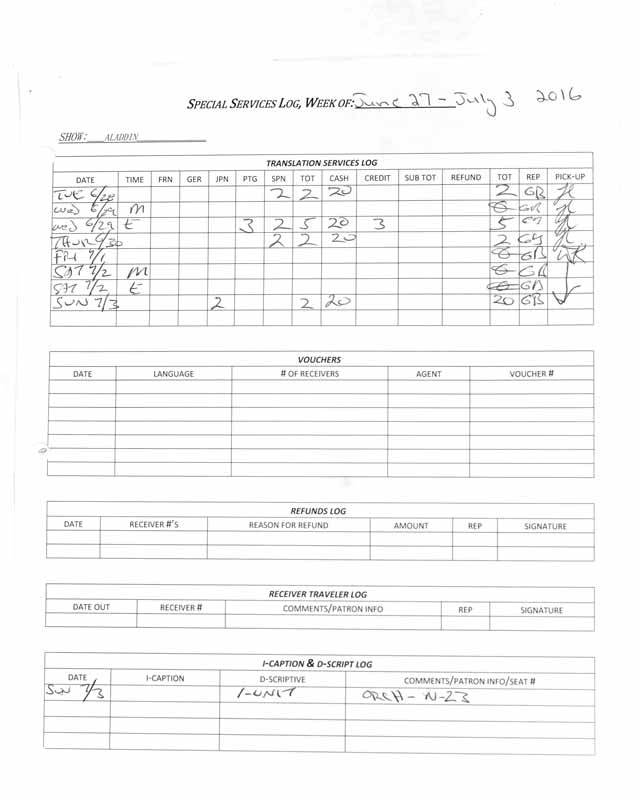 SPECIAL SERVICES LOG, WEEK OF: June 27 - July 3 2016
SHOW: ALADDIN
TRANSLATION SERVICES LOG
DATE TIME FRN GER JPN PTG SPN TOT CASH CREDIT SUB TOT REFUND TOT REP PICK-UP
TUE 6/28 2 2 20 2 GB
wed 6/29 M 0 GB
wed 6/29 E 3 2 5 20 3 5
THUR 6/30 2 2 20 2
FRI 7/1 0 GB
SAT 7/2 M 0 GB
SAT 7/2 E 0 GB
SUN 7/3 2 2 20 20 GB
VOUCHERS
DATE LANGUAGE # OF RECEIVERS AGENT VOUCHER #
REFUNDS LOG
DATE RECEIVER #'S REASON FOR REFUND AMOUNT REP SIGNATURE
RECEIVER TRAVELER LOG
DATE OUT RECEIVER # COMMENTS/PATRON INFO REP SIGNATURE
I-CAPTION & D-SCRIPT LOG
DATE I-CAPTION D-SCRIPTIVE COMMENTS/PATRON INFO/SEAT #
SUN 7/3 1-UNIT ORCH - N-23